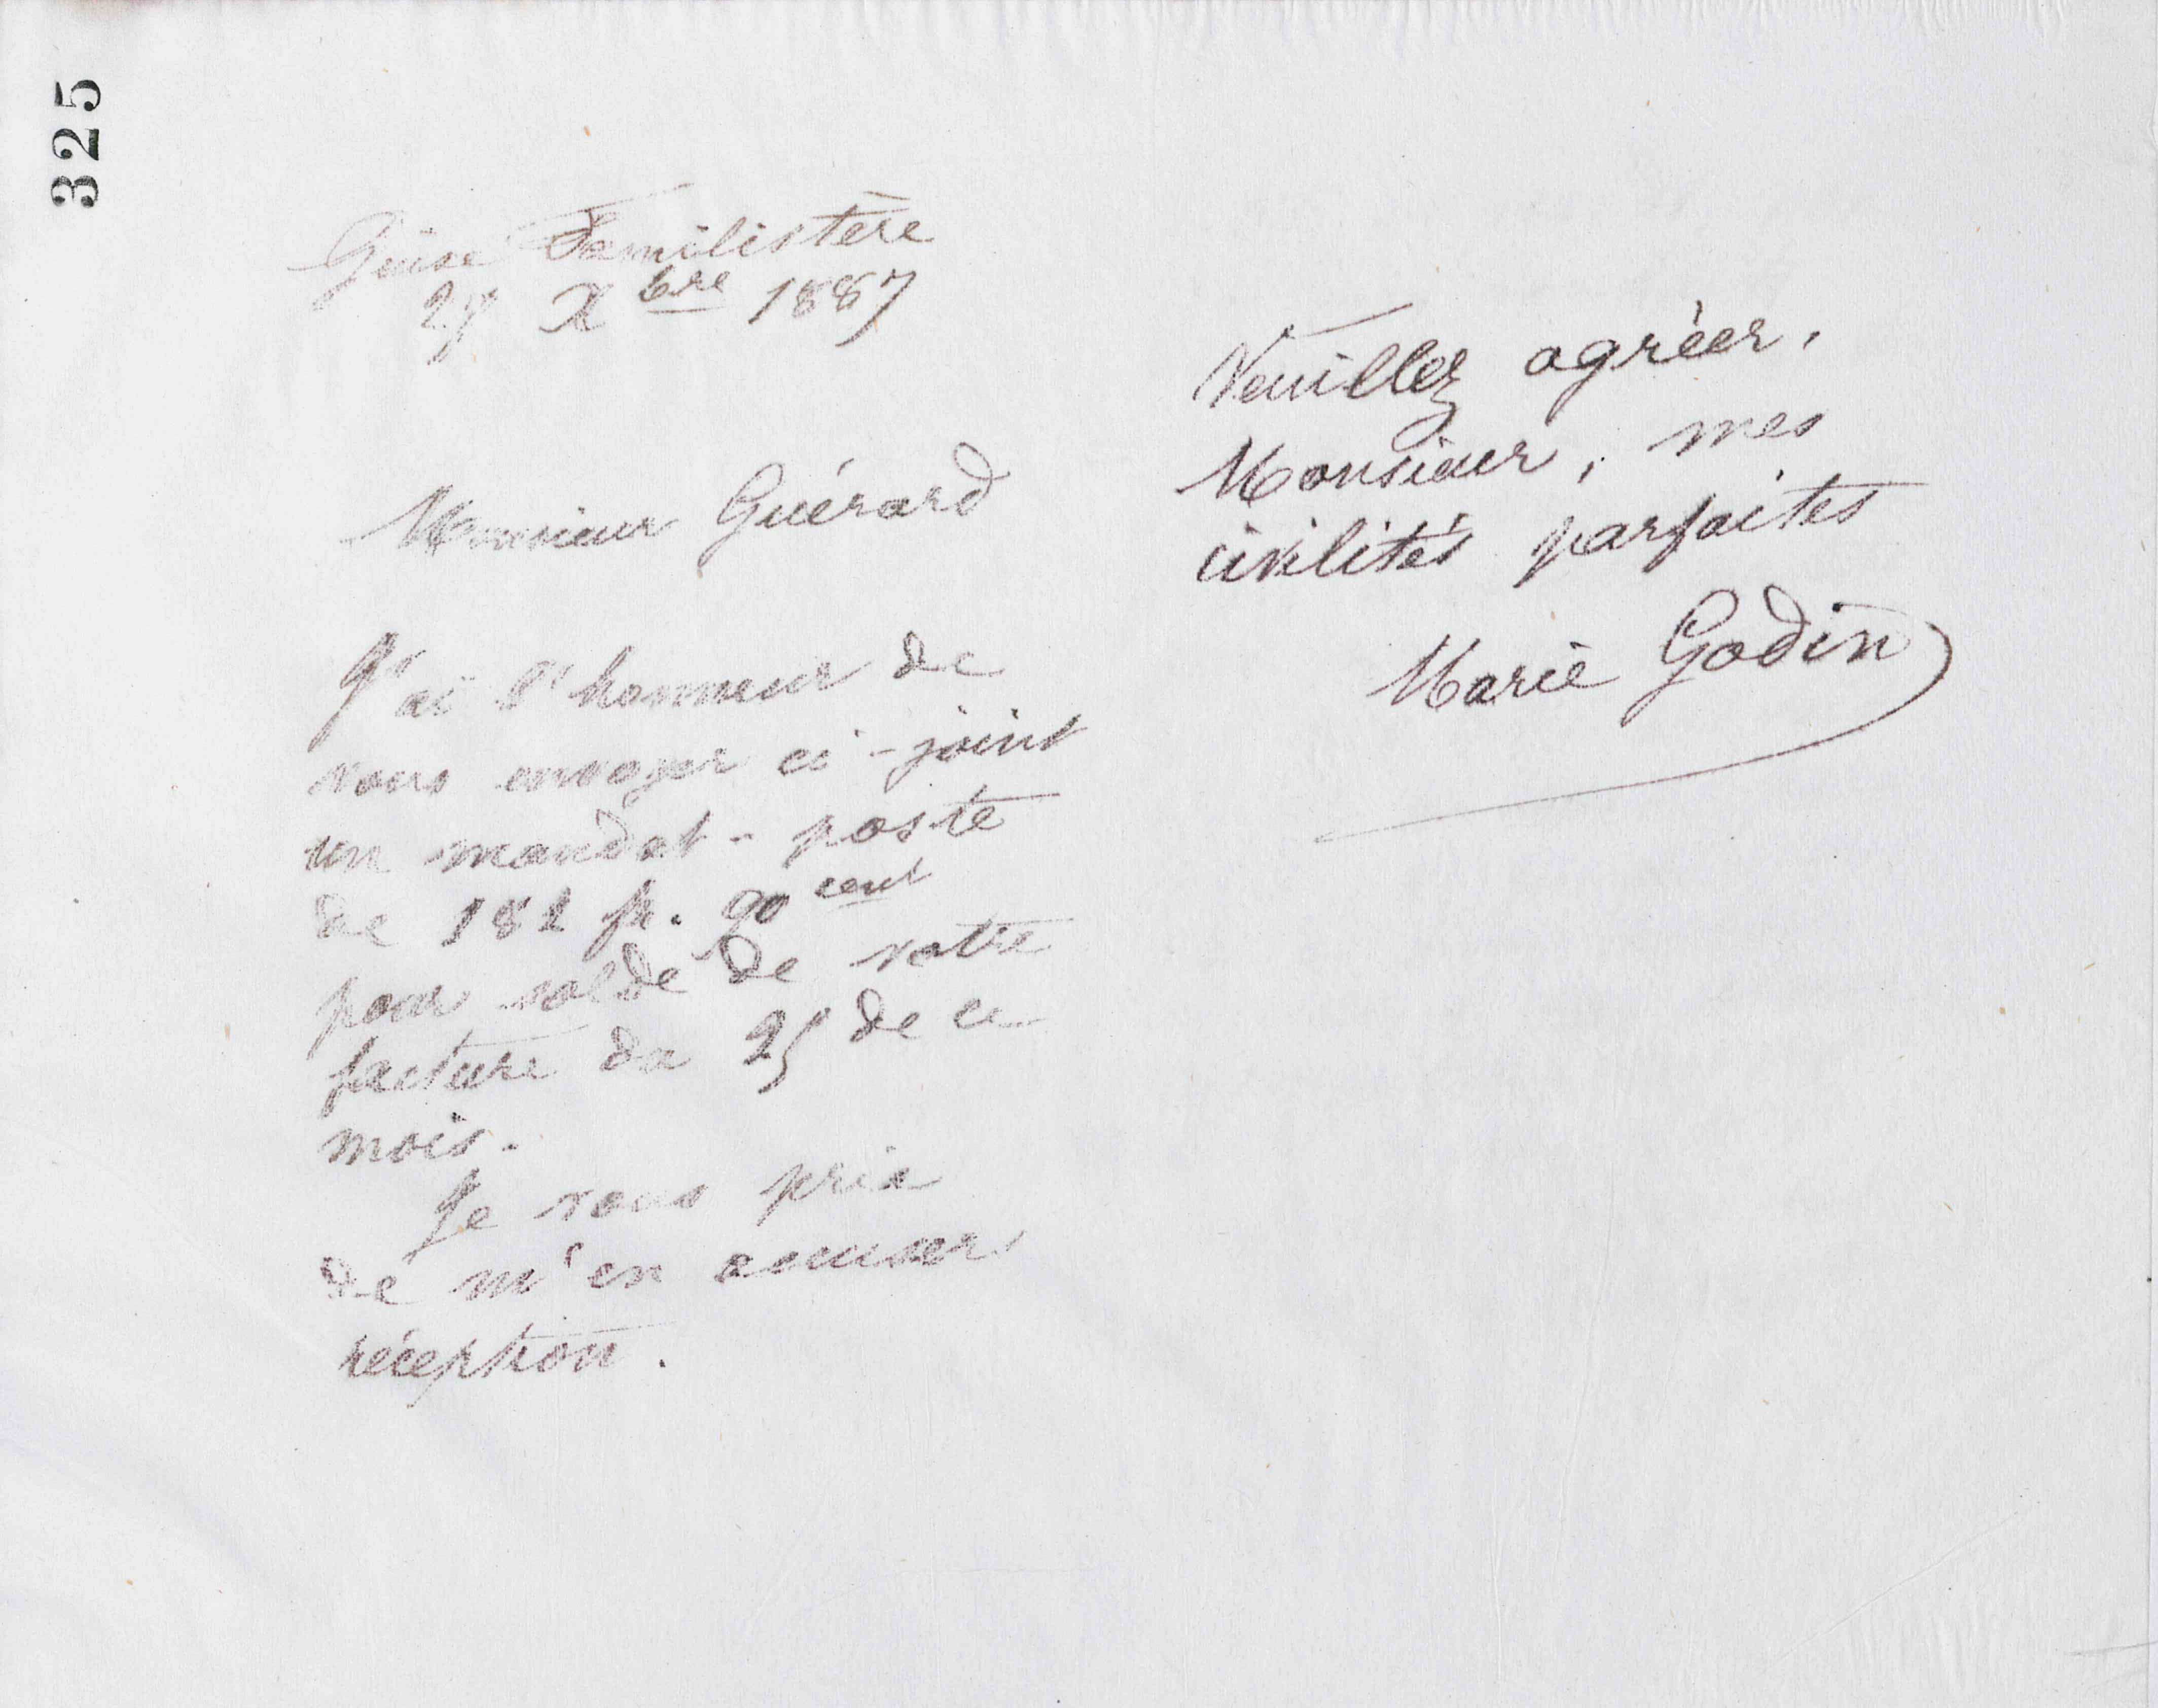 325
Guise Familistère
27 Xbre 1887
Monsieur Guérard
J'ai l'honneur de
vous envoyer ci-joint
un mandat-poste
de 182 fr. 90 cent
pour solde de votre
facture du 25 de ce
mois.
Je vous prie
de m'en accuser
réception.
Veuillez agréer,
Monsieur, mes
civilités parfaites
Marie Godin